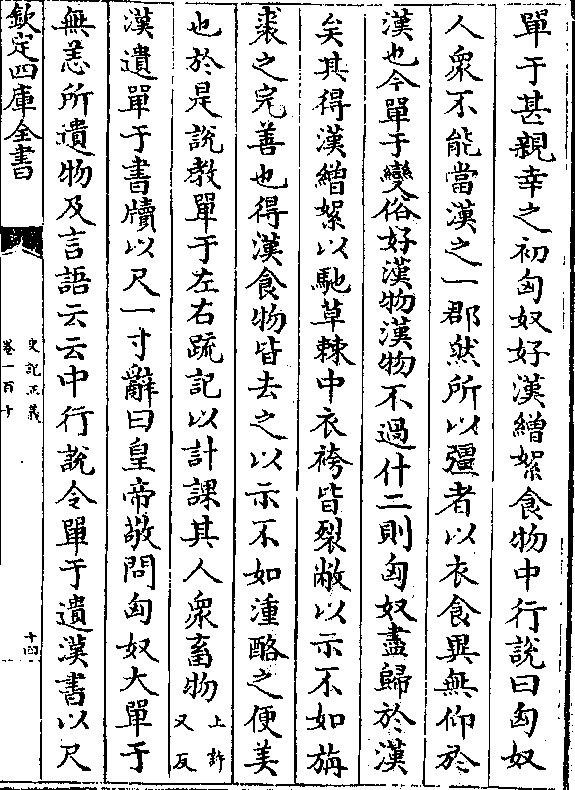 單于甚親幸之初匈奴好漢繒絮食物中行說曰匈奴
人衆不能當漢之一郡然所以彊者以衣食異無仰於
漢也今單于變俗好漢物漢物不過什二則匈奴盡歸於漢
矣其得漢繒絮以馳草棘中衣袴皆裂敝以示不如旃
裘之完善也得漢食物皆去之以示不如湩酪之便美
也於是說教單于左右疏記以計課其人衆畜物上許又反
漢遺單于書牘以尺一寸辭曰皇帝敬問匈奴大單于
無恙所遺物及言語云云中行說令單于遺漢書以尺
欽定四庫全書
史記正義
卷一百十
十四